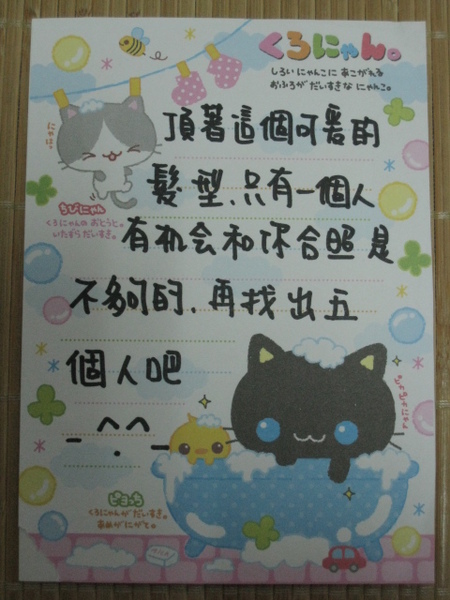 くろにゃん。
しろいにゃんこに あこがれる
おふろが だいすきな にゃんこ。
にゃは。
頂著這個可爱的
髮型、只有一個人
ちびにゃん
くろにゃんの おとうと。
いたずら だいすき。
有机会和你合照是
不夠的、再找出五
個人吧
-^.^-
ピヨっち
くろにゃんが だいすき。
あめがにがて。